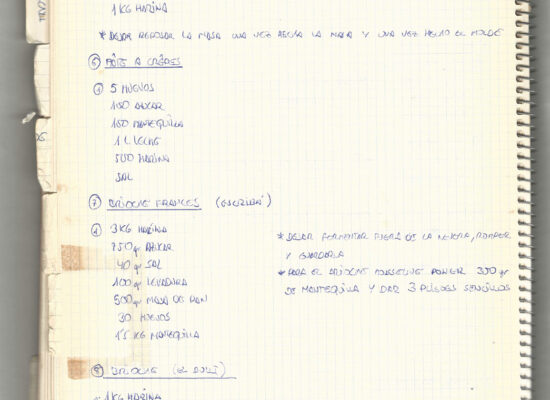 1 KG HARINA
* DEJAR REPOSAR LA MASA UNA VEZ HECHA LA MASA Y UNA VEZ HECHO EL MOLDE
6 PÂTE A CRÊPES
1 5 HUEVOS
150 AZUCAR
150 MANTEQUILLA
1 L LECHE
500 HARINA
SAL
7 BRIOCHE FRANCES
1 3 KG HARINA
750 gr AZUCAR
40 gr SAL
100 gr LEVADURA
500 gr MASA DE PAN
30 HUEVOS
1'5 KG MANTEQUILLA
* DEJAR FERMENTAR FUERA DE LA NEVERA, ROMPER
Y GUARDARLA
* PARA EL BRIOCHE MOUSSELINE PONER 350 gr
DE MANTEQUILLA Y DAR 3 PLIEGES SENCILLOS
8 BRIOCHE (EL BULLI)
1 KG HARINA